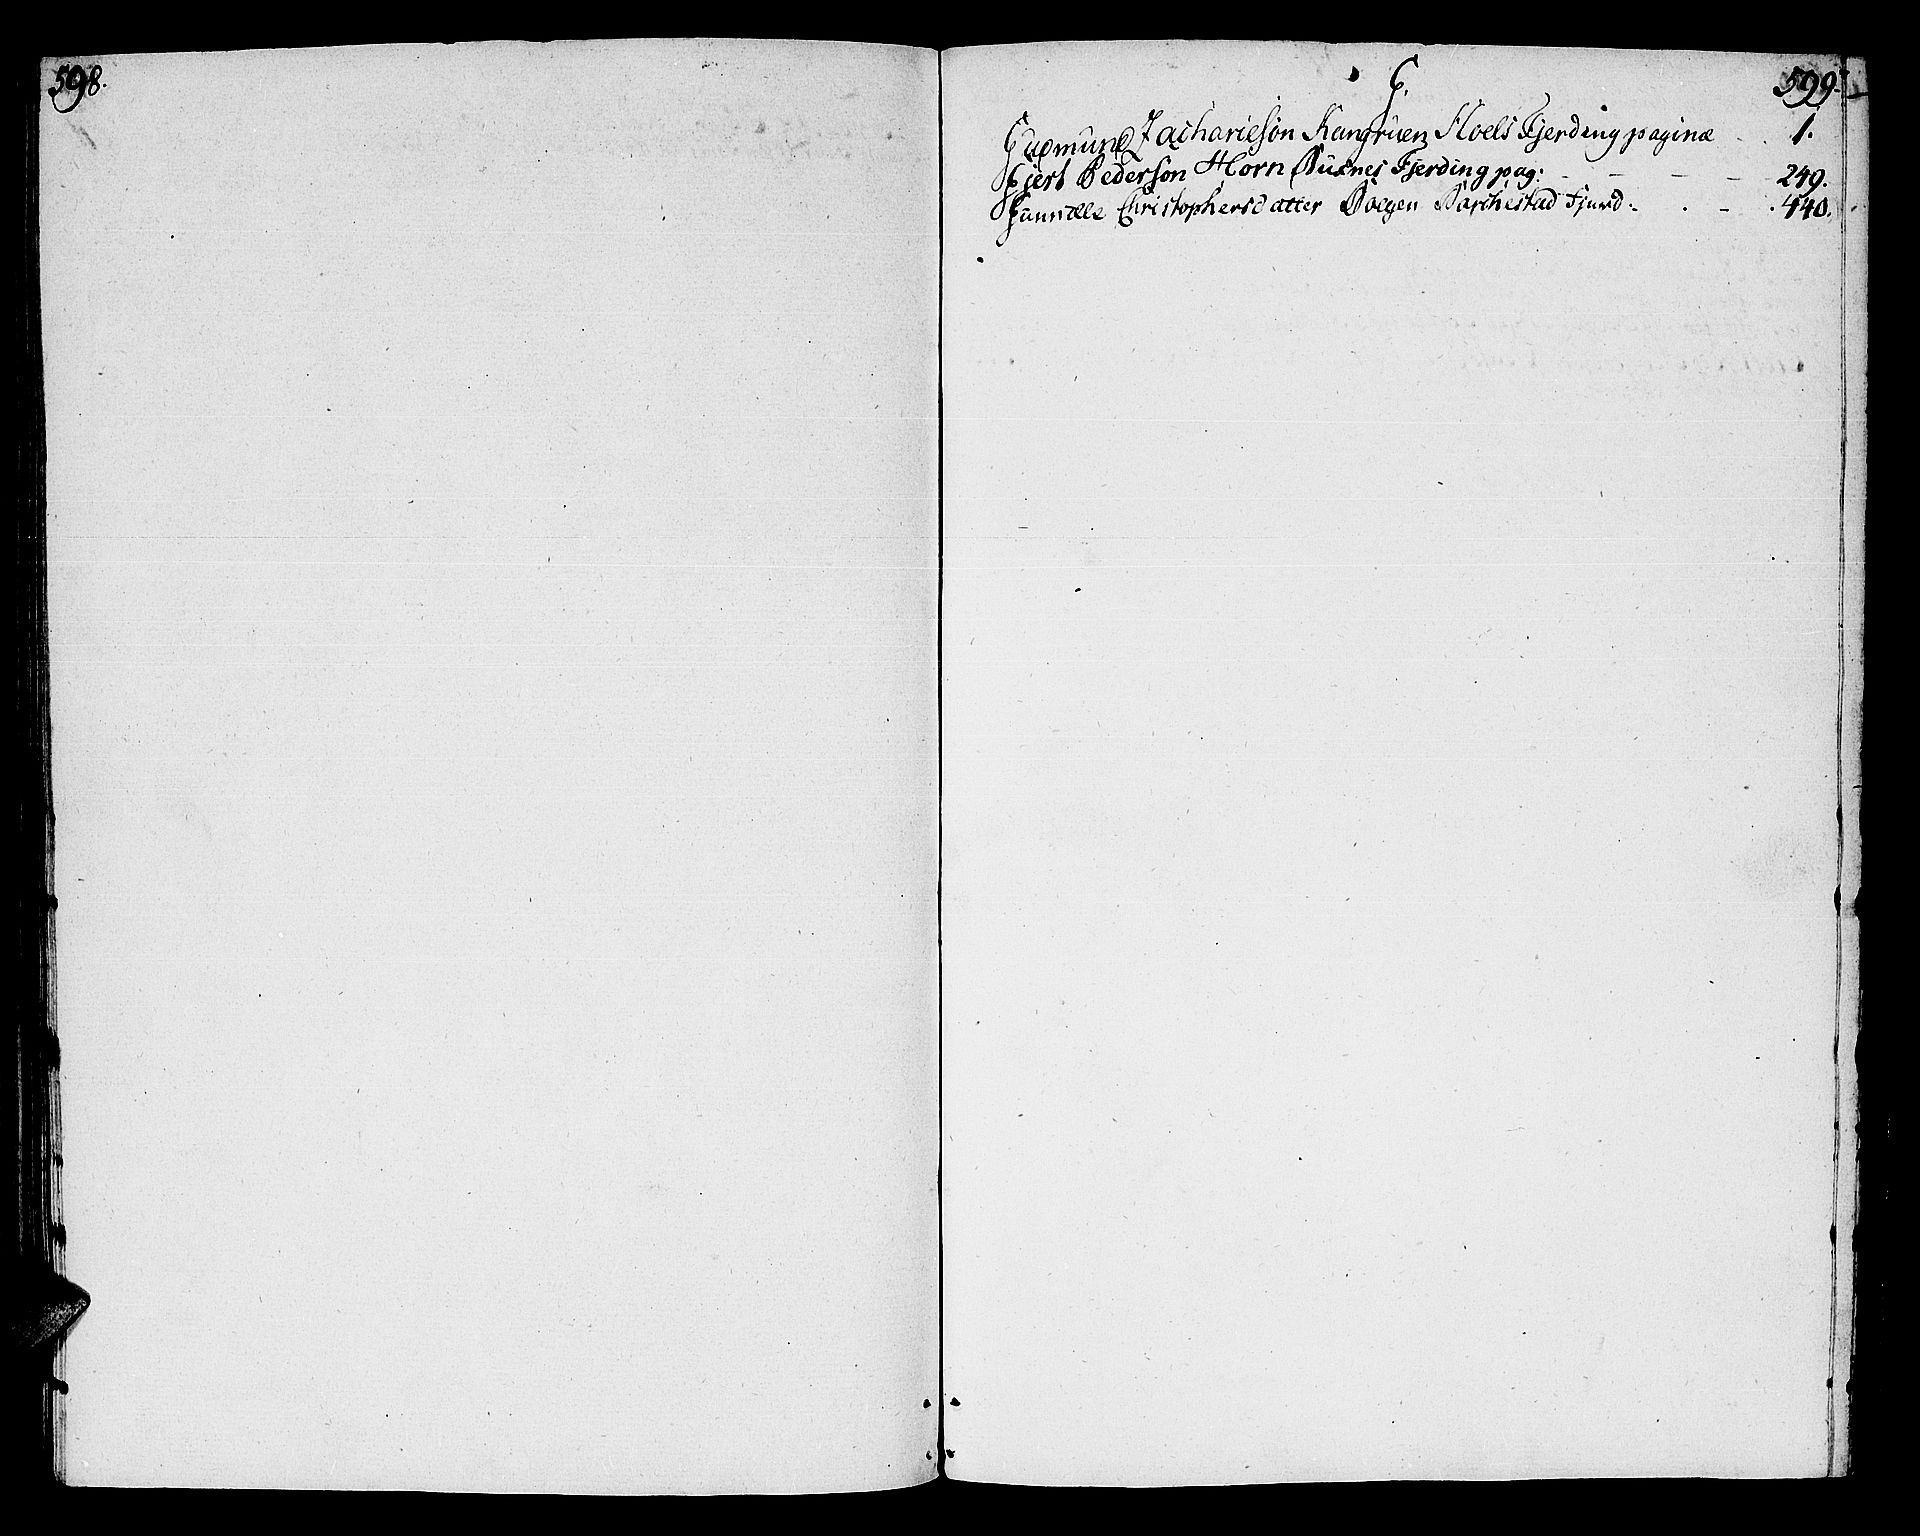 598.
599.
G.
Gudmund Zachariesøn Kangruen Hoels Fjerding paginæ . . 1.
Gjert Pedersøn Horn Busnes Fjerding pag: - - - - - 249.
Gunnille Christophersdatter Bolgen Dørchestad Fjerd: . - . 440.